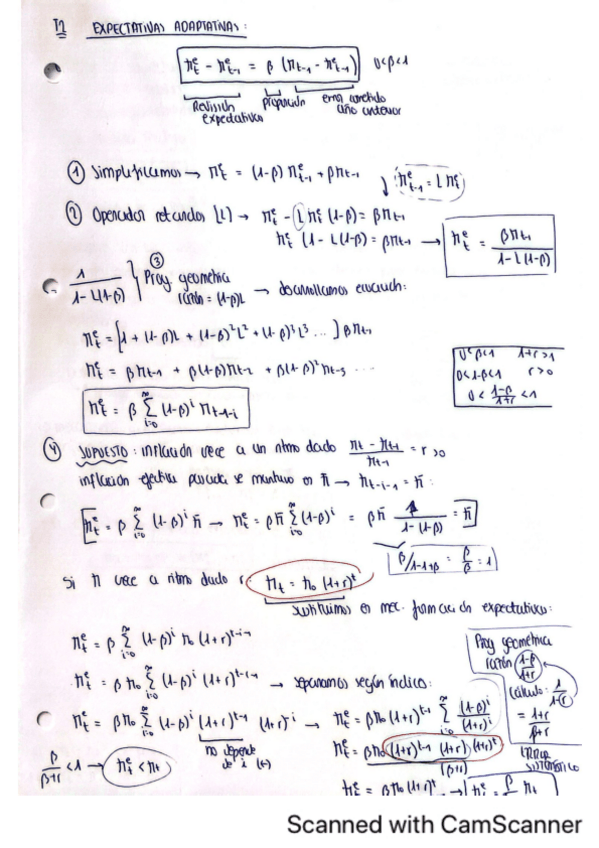 T2 EXPECTATIVAS ADAPTATIVAS:
π_t^e - π_{t-1}^e = β (π_{t-1} - π_{t-1}^e) 0<β<1
Revisión expectativas
proporción
error cometido año anterior
① Simplificamos → π_t^e = (1-β) π_{t-1}^e + βπ_{t-1}
π_{t-1}^e = L π_t^e
② Operador retardos [L] → π_t^e - L π_t^e (1-β) = βπ_{t-1}
π_t^e (1 - L(1-β) = βπ_{t-1} → π_t^e = βπ_{t-1} / 1-L(1-β)
③
1 / 1-L(1-β) } Prog. geométrica
razón = (1-β)L → desarrollamos ecuación:
π_t^e = [1 + (1-β)L + (1-β)²L² + (1-β)³L³ ...] βπ_{t-1}
π_t^e = βπ_{t-1} + β(1-β)π_{t-2} + β(1-β)²π_{t-3} ...
0<β<1 1+r>1
0<1-β<1 r>0
0 < 1-β / 1+r < 1
π_t^e = β Σ_{i=0}^∞ (1-β)^i π_{t-1-i}
④ SUPUESTO: inflación crece a un ritmo dado π_t - π_{t-1} / π_{t-1} = r >0
inflación efectiva pasada se mantuvo en π̄ → π_{t-i-1} = π̄:
π_t^e = β Σ_{i=0}^∞ (1-β)^i π̄ → π_t^e = βπ̄ Σ_{i=0}^∞ (1-β)^i = βπ̄ 1 / 1-(1-β) = π̄
β/1-1+β = β/β = 1
Si π crece a ritmo dado r: π_t = π_0 (1+r)^t
sustituimos en mec. formación expectativas:
π_t^e = β Σ_{i=0}^∞ (1-β)^i π_0 (1+r)^{t-i-1}
π_t^e = β π_0 Σ_{i=0}^∞ (1-β)^i (1+r)^{t-i-1} → separamos según índice:
Prog geométrica
razón 1-β / 1+r
cálculo: 1 / 1-r
= 1+r / β+r
π_t^e = βπ_0 Σ_{i=0}^∞ (1-β)^i (1+r)^{t-1} (1+r)^{-i} → π_t^e = βπ_0 (1+r)^{t-1} Σ_{i=0}^∞ (1-β)^i / (1+r)^i
no depende de i
π_t^e = βπ_0 (1+r)^{t-1} (1+r) (1+r)^t / (β+r)
β / β+r < 1 → π_t^e < π_t
π_t^e = β π_0 (1+r)^t
Scanned with CamScanner